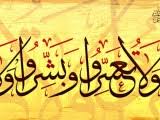 وَلَا تُعَسِّرُوا وَبَشِّرُوا وَلَا